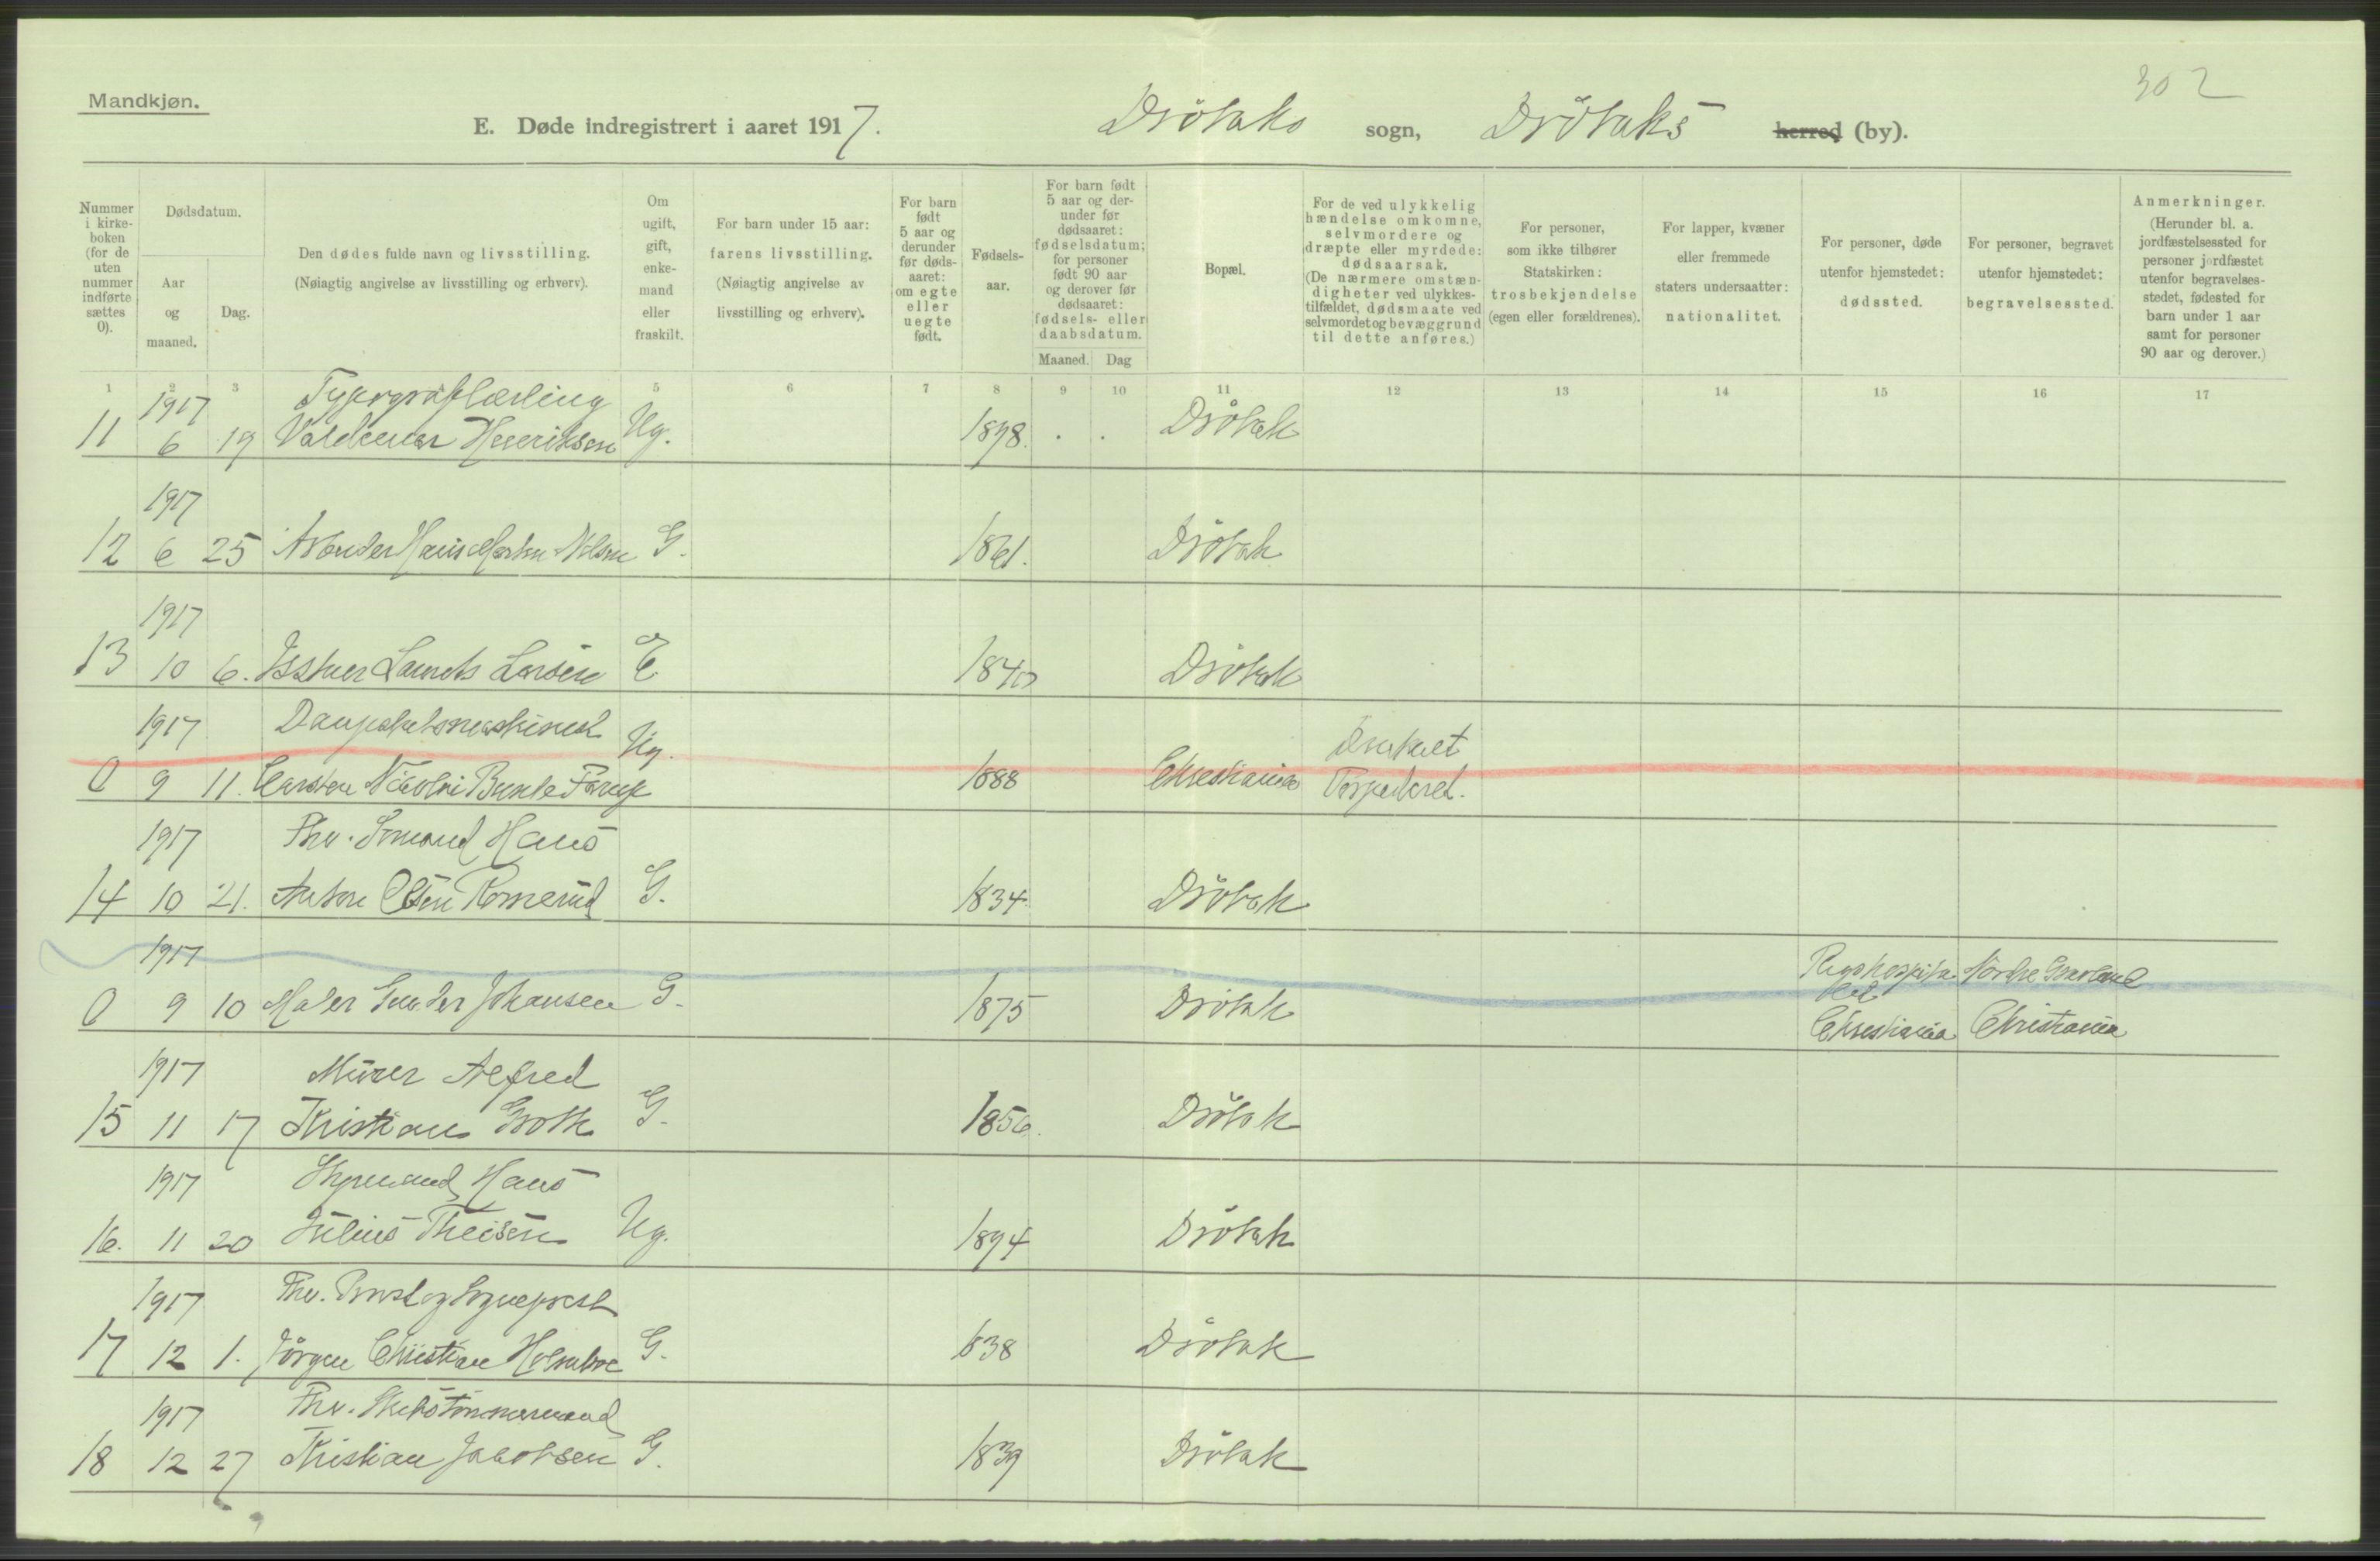 302
Mandkjøn.
E. Døde indregistrert i aaret 1917. Drøbaks sogn, Drøbaks herred (by).
Nummer i kirke-boken (for de uten nummer indførte sættes 0).
Dødsdatum.
Aar og maaned.
Dag.
Den dødes fulde navn og livsstilling.
(Nøiagtig angivelse av livsstilling og erhverv).
Om ugift, gift, enke-mand eller fraskilt.
For barn under 15 aar: farens livsstilling.
(Nøiagtig angivelse av livsstilling og erhverv).
For barn født 5 aar og derunder før døds-aaret: om egte eller uegte født.
Fødsels-aar.
For barn født 5 aar og der-under før dødsaaret: fødselsdatum; for personer født 90 aar og derover før dødsaaret: fødsels- eller daabsdatum.
Maaned. Dag
Bopæl.
For de ved ulykkelig hændelse omkomne, selvmordere og dræpte eller myrdede: dødsaarsak.
(De nærmere omstæn-digheter ved ulykkes-tilfældet, dødsmaate ved selvmordet og bevæggrund til dette anføres.)
For personer, som ikke tilhører Statskirken: trosbekjendelse (egen eller forældrenes).
For lapper, kvæner eller fremmede staters undersaatter: nationalitet.
For personer, døde utenfor hjemstedet: dødssted.
For personer, begravet utenfor hjemstedet: begravelsessted.
Anmerkninger.
(Herunder bl. a. jordfæstelsessted for personer jordfæstet utenfor begravelses-stedet, fødested for barn under 1 aar samt for personer 90 aar og derover.)
1 2 3 5 6 7 8 9 10 11 12 13 14 15 16 17
1917 Typograflærling
11 6 19 Valdemar Henriksen Ug. 1898. Drøbak
1917
12 6 25 Arbeider Hans Morten Nilsen G. 1861. Drøbak
1917
13 10 6. Larsen E 1840 Drøbak
1917 Dampskibsmaskinist Ug. Druknet
0 9 11. Carsten Nicolai 1888 Christiania Torpederet.
1917 Fhv. Hans
14 10 21. Anton Olsen G. 1834 Drøbak
1917 Rigshospita- Nordre Gravlund
0 9 10 Maler Gunder Johansen G. 1875 Drøbak let
Christiania Christiania
1917 Murer Alfred
15 11 17 Kristian Groth G. 1856. Drøbak
1917 Styrmand Hans
16. 11 20 Julius Theisen Ug. 1894 Drøbak
1917 Fhv. Provst og Sogneprest
17 12 1. Jörgen Christian Holmboe G. 1838 Drøbak
1917 Fhv. Skibstömmermand
18 12 27 Kristian Jacobsen G. 1839 Drøbak